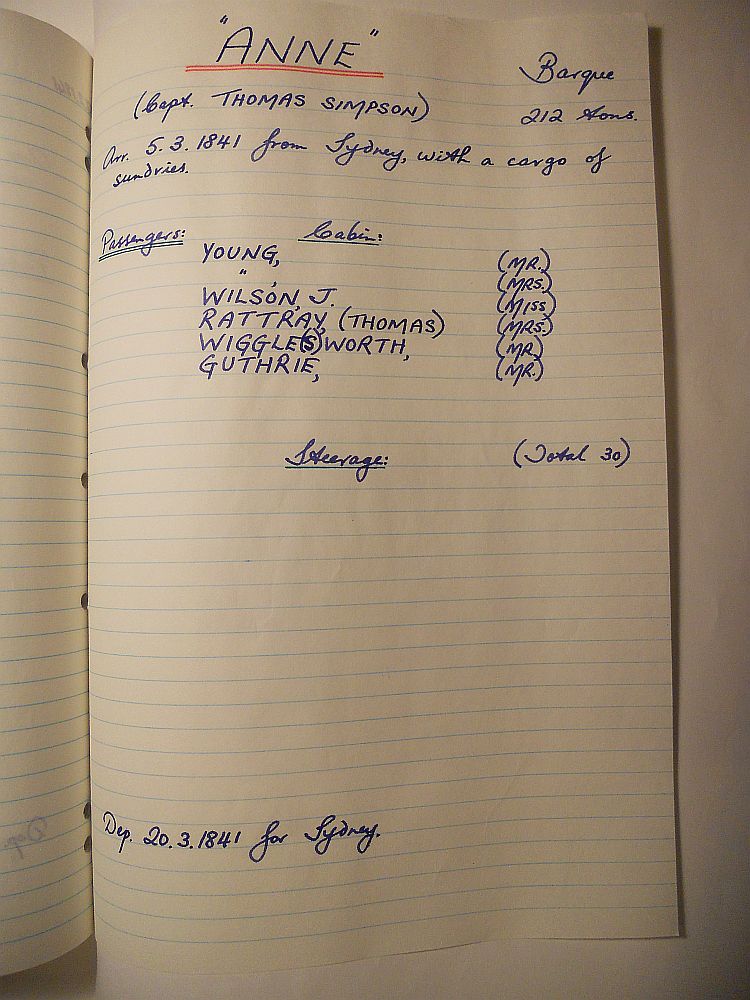 "ANNE"
Barque
(Capt. THOMAS SIMPSON)
212 tons.
Arr. 5.3.1841 from Sydney, with a cargo of
sundries.
Passengers: Cabin:
YOUNG, (MR.)
" , (MRS.)
WILSON, J. (MISS)
RATTRAY, (THOMAS) (MRS.)
WIGGLE(S)WORTH, (MR.)
GUTHRIE, (MR.)
Steerage: (Total 30)
Dep. 20.3.1841 for Sydney.